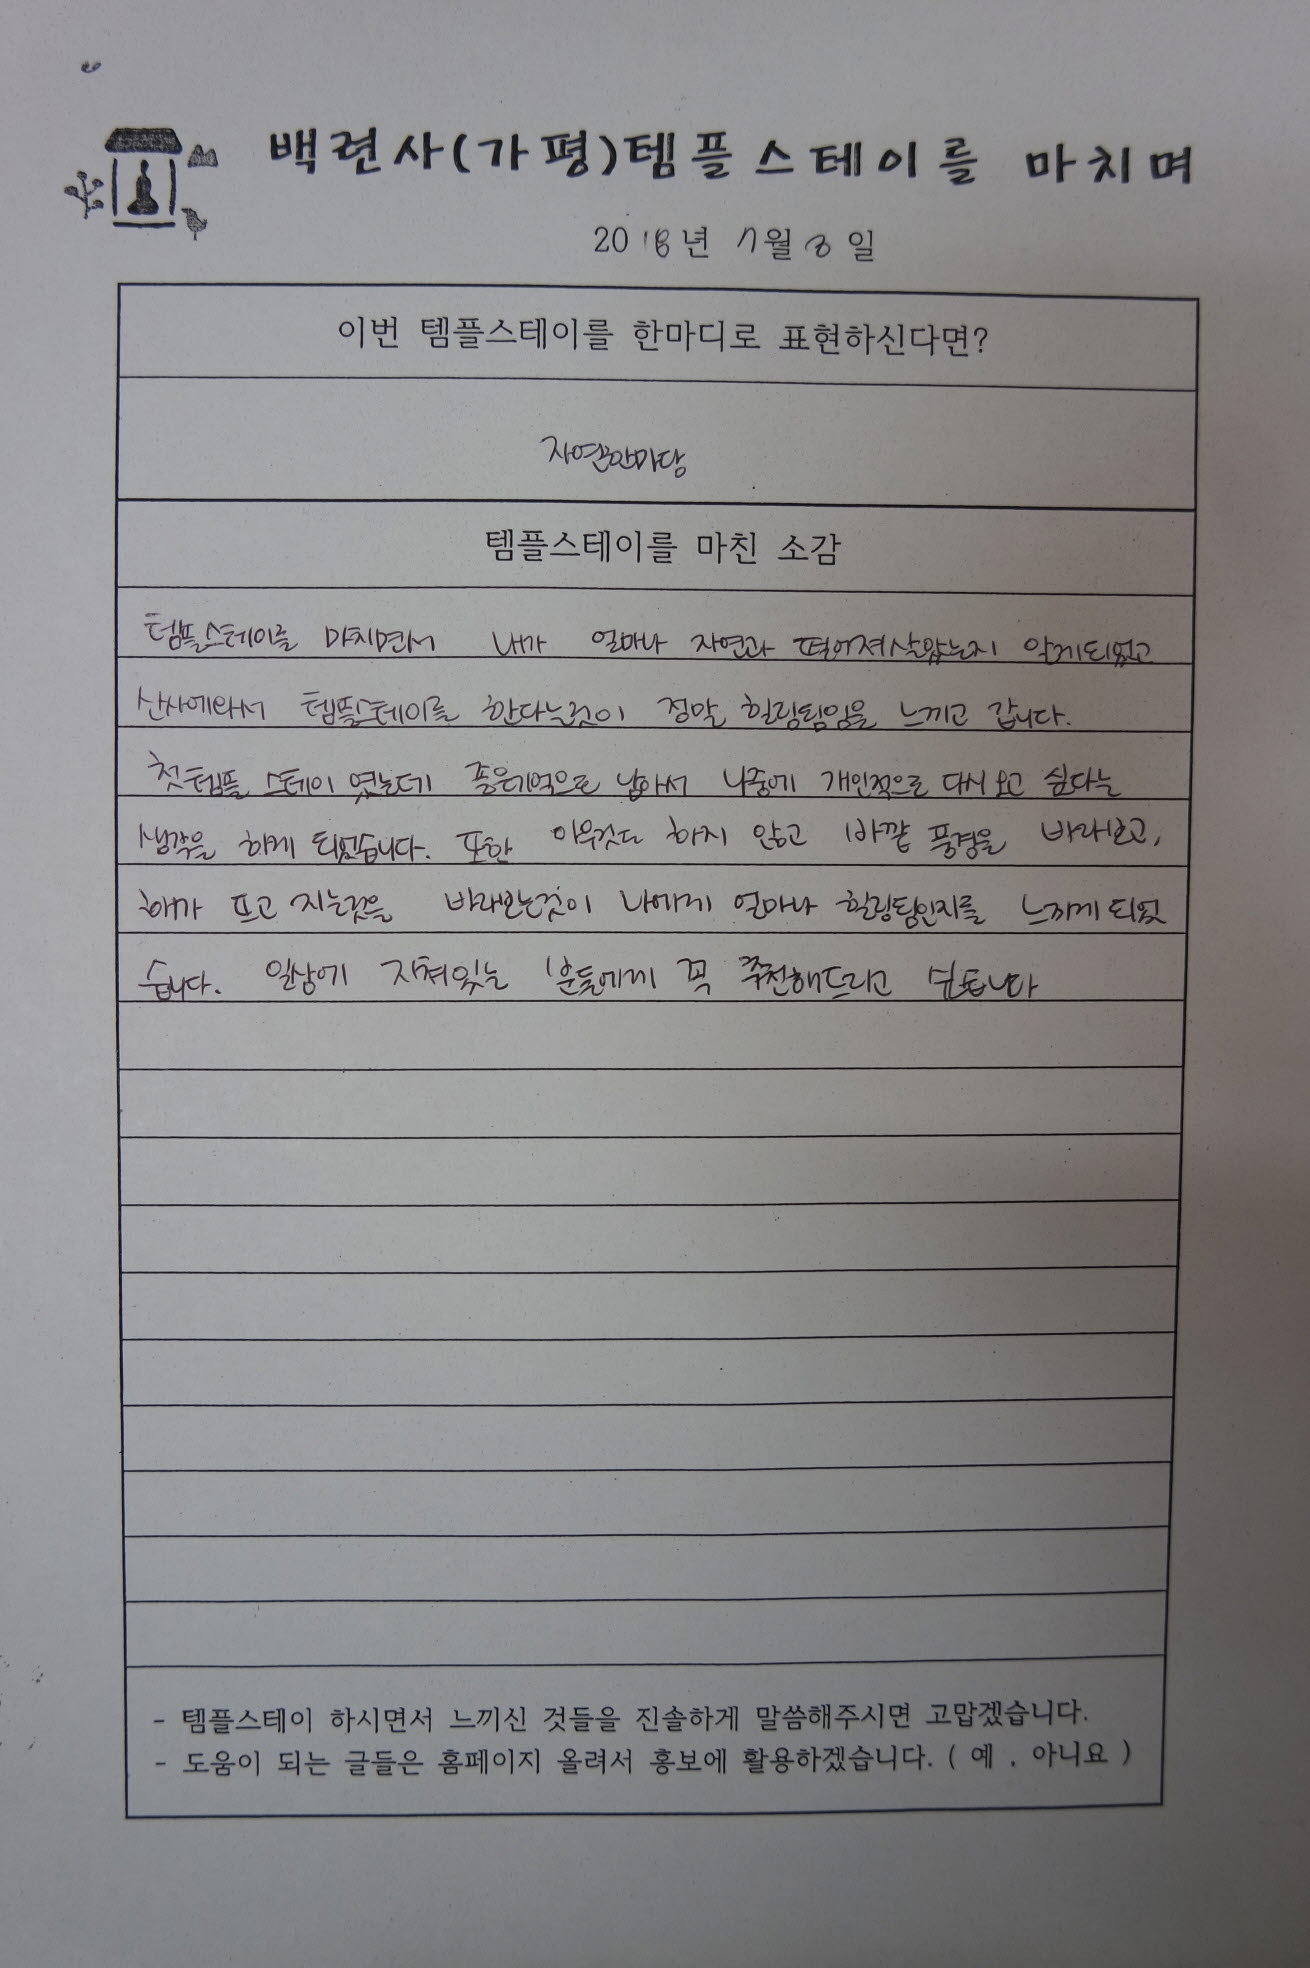 백련사(가평)템플스테이를 마치며
2018년 7월 3일
이번 템플스테이를 한마디로 표현하신다면?
자연한마당
템플스테이를 마친 소감
템플스테이를 마치면서 내가 얼마나 자연과 떨어져살았는지 알게되었고
산사에와서 템플스테이를 한다는것이 정말 힐링됨임을 느끼고 갑니다.
첫템플 스테이 였는데 좋은기억으로 남아서 나중에 개인적으로 다시 오고 싶다는
생각을 하게 되었습니다. 또한 아무것도 하지 않고 바깥 풍경을 바라보고,
해가 뜨고 지는것을 바라보는것이 나에게 얼마나 힐링됨인지를 느끼게 되었
습니다. 일상에 지쳐있는 분들에게 꼭 추천해드리고 싶습니다
- 템플스테이 하시면서 느끼신 것들을 진솔하게 말씀해주시면 고맙겠습니다.
- 도움이 되는 글들은 홈페이지 올려서 홍보에 활용하겠습니다. ( 예 , 아니요 )